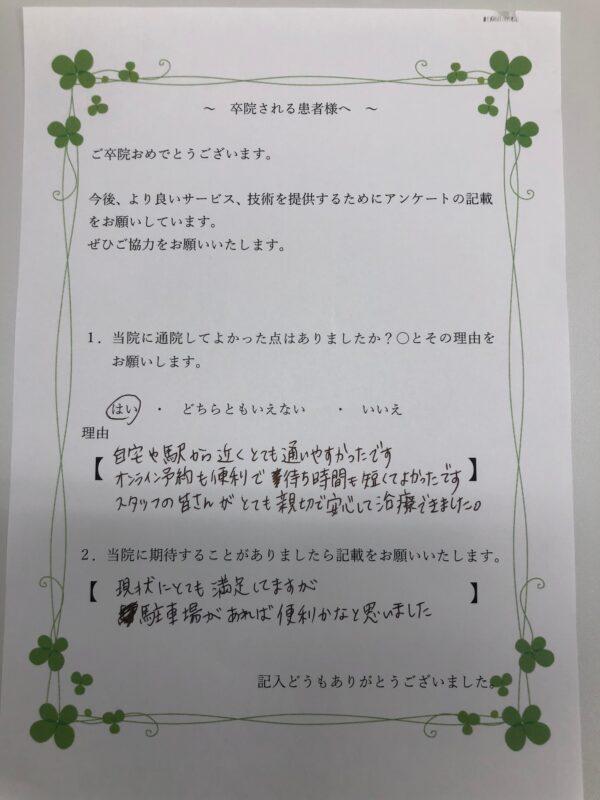 ～　卒院される患者様へ　～
ご卒院おめでとうございます。
今後、より良いサービス、技術を提供するためにアンケートの記載
をお願いしています。
ぜひご協力をお願いいたします。
１．当院に通院してよかった点はありましたか？○とその理由を
お願いします。
はい　・　どちらともいえない　・　いいえ
理由
【 自宅や駅から近くとても通いやすかったです
オンライン予約も便利で待ち時間も短くてよかったです 】
スタッフの皆さんがとても親切で安心して治療できました。
２．当院に期待することがありましたら記載をお願いいたします。
【 現状にとても満足してますが 】
駐車場があれば便利かなと思いました
記入どうもありがとうございました。